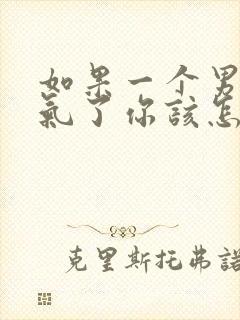 如果一个男
氣了你该怎
克里斯托弗諾